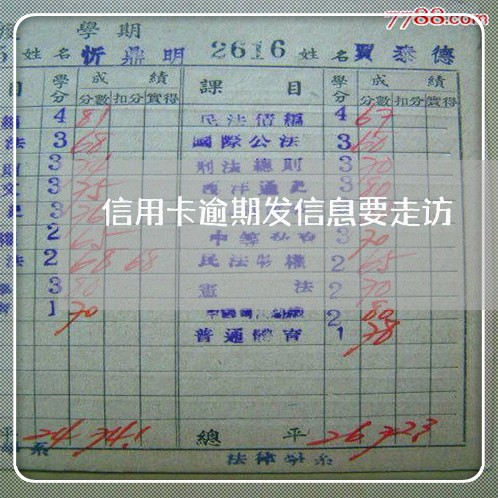 7788.com
學期
姓名 忻鼎明 2616 姓名 賈泰德
目 學分 成績 課目 學分 成績
分數 扣分 實得 分數 扣分 實得
4 81 民法債編 4 67
法 3 68 國際公法 3 60
3 刑法總則 3 70
3 75 西洋通史 3 80
3
信用卡逾期发信息要走访
2 65 3 70
法 2 68 68 民法物權 2 65
3 80 憲法 2 70
1 70 2 80
普通體育 1 78
平 24 74.1 總平 26 72.3
系 法律學系